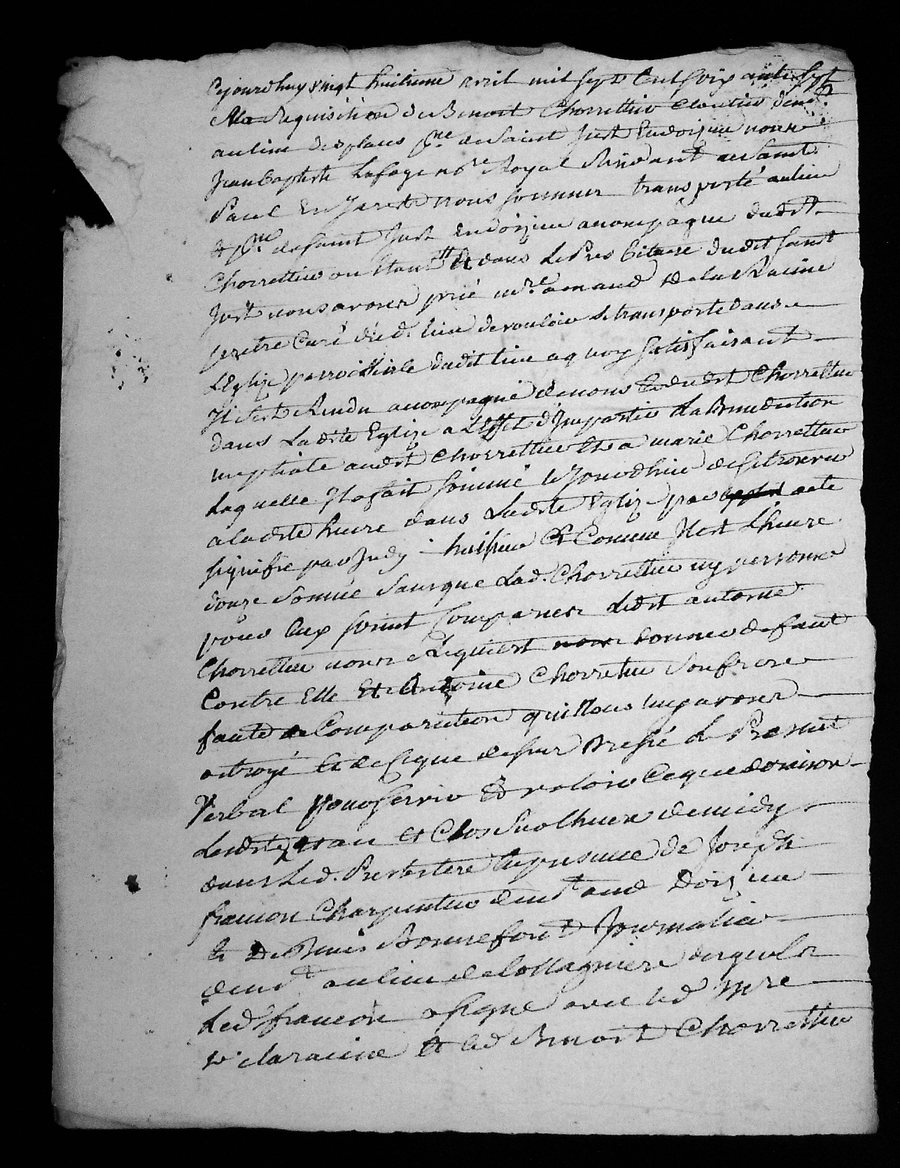 Cejourdhuy vingt huitieme avril mil sept Cent soix ante sept
A la Requisition de Benoit Chorrettier cloutier dem.t
au lieu des plaus p.sse de Saint Just Endoizieu nous
Jean Baptiste Lafage no.re Royal Résidant au Saint
Paul En Jaret nous sommes transporté au lieu
et p.sse de Saint Just en doizieu accompagné dudit
Chorrettier ou Etant dans le Pres bitaire dudit Saint
Just nous avons prié m.re amand De la Racine
prètre Curé dud. lieu de vouloir se transporté dans
L'Eglize parroissialle dudit lieu a quoy satisfaisant
Il s'est Rendu accompagné de nous et dudit Chorrettier
dans Ladite Eglize a L'effet d'Impartir La Benediction
nuptiale audit Chorrettier et a marie Chorrettier
Laquelle Il a fait sommé de se trouver
a ladite heure dans Ladite Eglize par acte
signifié par huissier Et Comme Il est L'heure
douze sonnée Sans que Lad. Chorrettier ny personne
pour Eux soint Comparus Ledit
Chorrettier nous Requiert donner defaut
Contre Elle Et Chorrettier son frere
faute de Comparution que Nous luy avons
octroyé Et de ce que dessus Dressé Le Present
Verbal pour servir Et valoir Ce que de raison
Et Clos sur L'heure de midy
dans Led. Presbitere En presence de Joseph
françon Charpentier dem.t aud. Doizieu
Et De Denis Bonnefont Journalier
dem.t au lieu de
Led. françon a signé avec led. m.re
De laracine Et led. Benoit Chorrettier